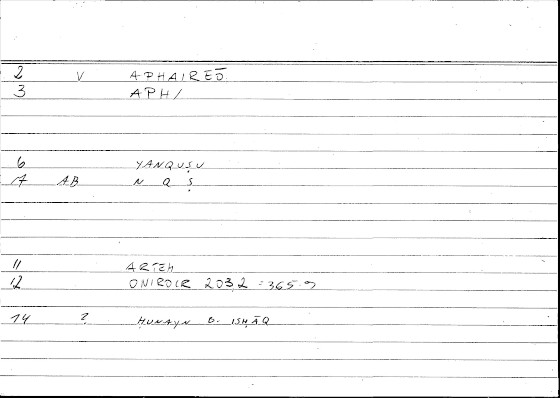 2 V APHAIREŌ
3 APH/
6 YANQUṢU
17 AB N Q Ṣ
11 ARTEM
12 ONIROCR 203,2 : 365.9
14 ? ḤUNAYN B. ISḤĀQ